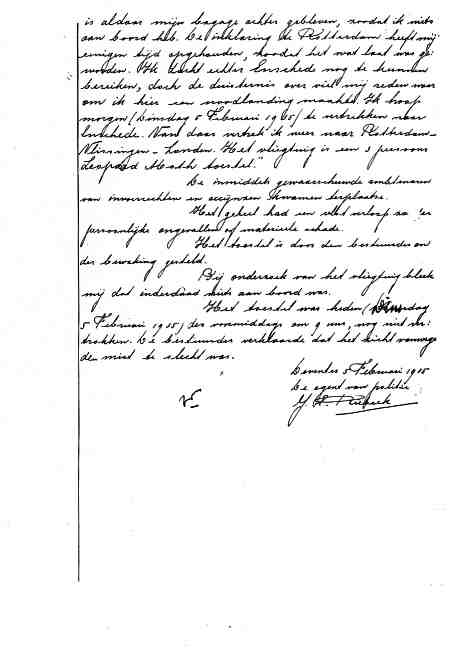 is aldaar mijn bagage achter gebleven, zoodat ik niets
aan boord heb. De inklaring te Rotterdam heeft mij
eenigen tijd opgehouden, zoodat het wat laat was ge-
worden. Ik dacht echter Enschede nog te kunnen
bereiken, doch de duisternis over viel mij reden waar
om ik hier een noodlanding maakte. Ik hoop
morgen (Dinsdag 5 Februari 1935) te vertrekken naar
Enschede. Van daar vertrek ik weer naar Rotterdam-
Vlissingen - Londen. Het vliegtuig is een 3 persoons
Leopard Moth toestel."
De inmiddels gewaarschuwde ambtenaren
van invoerrechten en accijnzen kwamen ter plaatse.
Het geheel had een vlot verloop zo
persoonlijke ongevallen of materieele schade.
Het toestel is door den bestuurder on
der bewaking gesteld.
Bij onderzoek van het vliegtuig bleek
mij dat inderdaad niets aan boord was.
Het toestel was heden (Dinsdag
5 Februari 1935) des voormiddags om 9 uur, nog niet ver-
trokken. De bestuurder verklaarde dat het zicht vanwege
den mist te slecht was.
Deventer 5 Februari 1935
De agent van politie